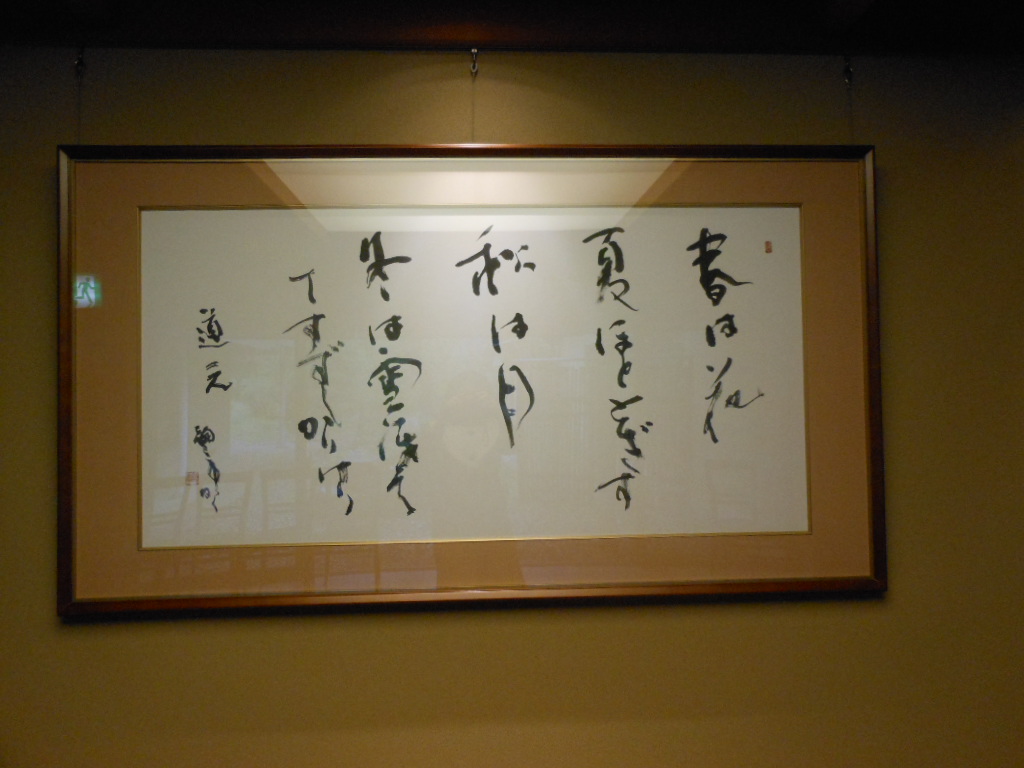 春は花
夏ほととぎす
秋は月
冬は雪冴え
てすずしかりけり
道元